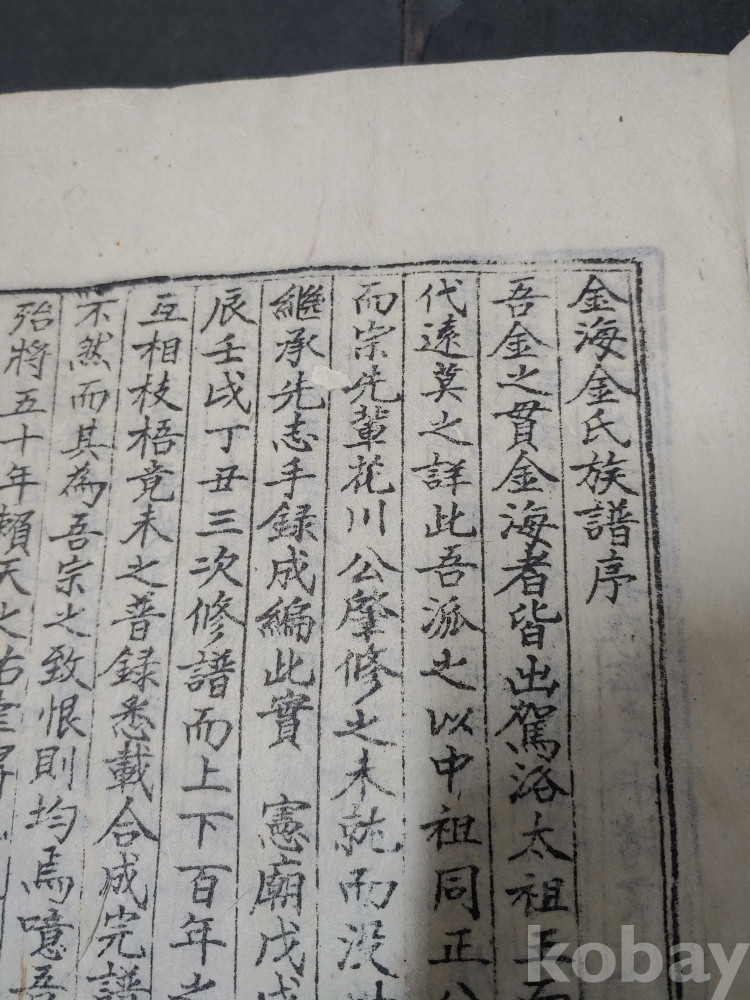 金海金氏族譜序
吾金之貫金海者皆出駕洛太祖王而
代遠莫之詳此吾派之以中祖同正公
而宗先輩花川公肇修之未就而没
繼承先志手録成編此實 憲廟戊戌
辰壬戌丁丑三次修譜而上下百年之
互相枝梧竟未之普録悉載合成完譜
不然而其為吾宗之致恨則均焉噫吾
殆將五十年賴天之佑
kobay